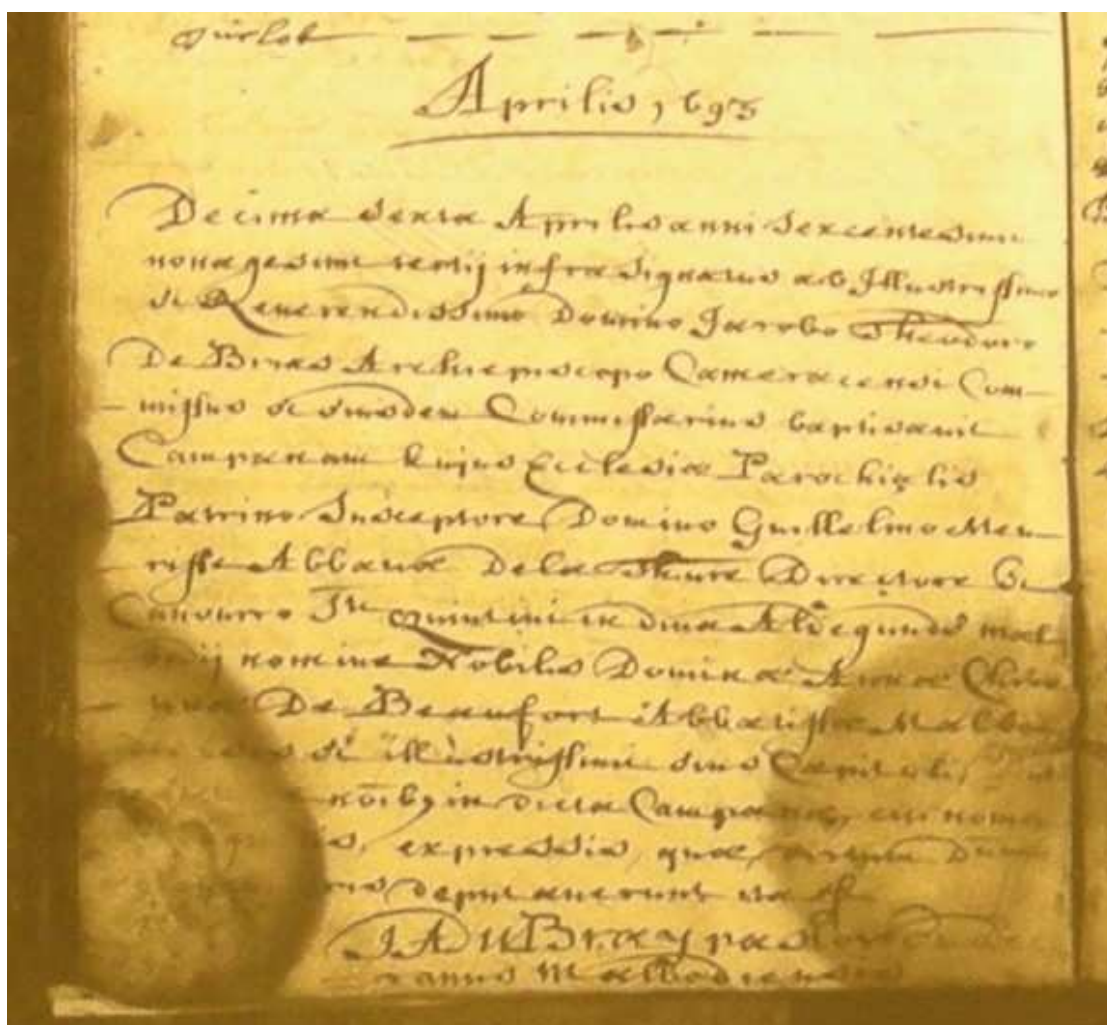 Aprilis 1693
Decima sexta Aprilis anni sexcentesimi
nonagesimi tertij infrasignatus ab Illustrissimo
& Reverendissimo Domino Jacobo Theodoro
De Brias Archiepiscopo Cameracensi Com-
missus & eiusdem Commissarius baptisavit
Campanam hujus Ecclesiæ Parochialis
Patrino Susceptore Domino Guillelmo Meu-
risse Abbatiæ De la Thure Directore &
Canonico Sti Quintini in Aldegundis
nomine Nobilis Dominæ Annæ
De Beaufort Abbatissæ
& illustrissimi sui Capituli,
noibq in dicta Campana, nomi
expressis, quæ
deputaverunt ita est
J AUBray pastor
Malbodiensis